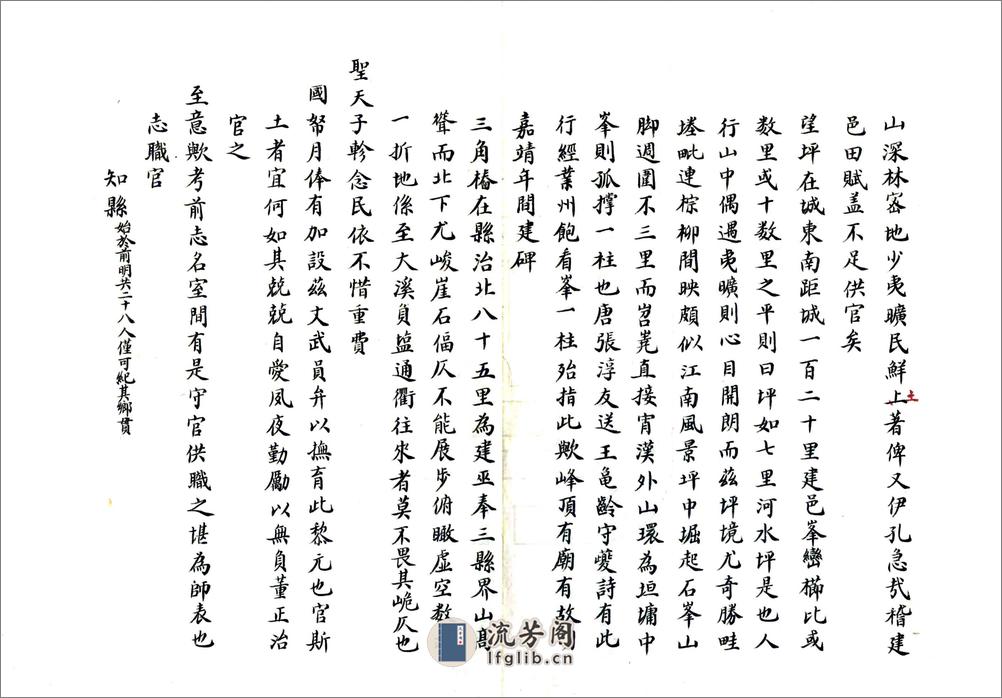 山深林密地少夷曠民鮮上著俾又伊孔急哉稽建
土
邑田賦盖不足供官矣
望坪在城東南距城一百二十里建邑峯巒櫛比或
数里或十数里之平則曰坪如七里河水坪是也人
行山中偶遇夷曠則心目開朗而兹坪境尤奇勝畦
塍毗連棕柳間映頗似江南風景坪中堀起石峯山
脚週圍不三里而岧嶤直接霄漢外山環為垣墉中
峯則孤撐一柱也唐張淳友送王龟齡守夔詩有此
行經業州飽看峯一柱殆指此歟峰頂有廟有故明
嘉靖年間建碑
三角樁在縣治北八十五里為建巫奉三縣界山髙
聳而北下尤峻崖石偪仄不能展步俯瞰虚空数
一折地係至大溪負盐通衢往來者莫不畏其峗仄也
聖天子軫念民依不惜重費
國帑月俸有加設兹文武員弁以撫育此黎元也官斯
土者宜何如其兢兢自愛夙夜勤勵以無負董正治
官之
至意歟考前志名室間有是守官供職之堪為師表也
志職官
知縣始於前明共二十八人僅可紀其鄉貫
流芳阁
lfglib.cn